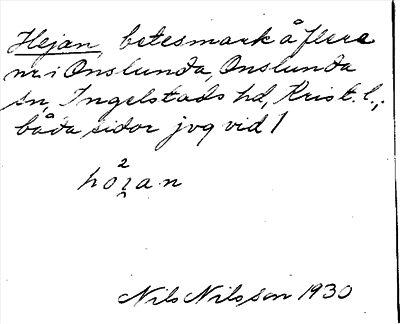 Hejan, betesmark å flere
nr i Onslunda, Onslunda
sn, Ingelstads hd, Krist. l.;
båda sidor jvg vid 1
Nils Nilsson 1930